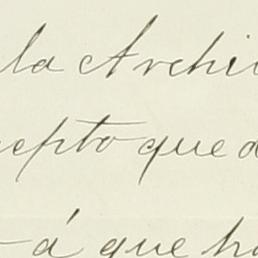 la Archi
cepto que a
- á que ha